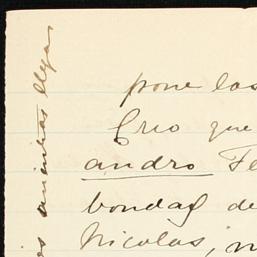 pone las
Crio que
andro Fe
bondad de
Nicolas, m
mientras llega